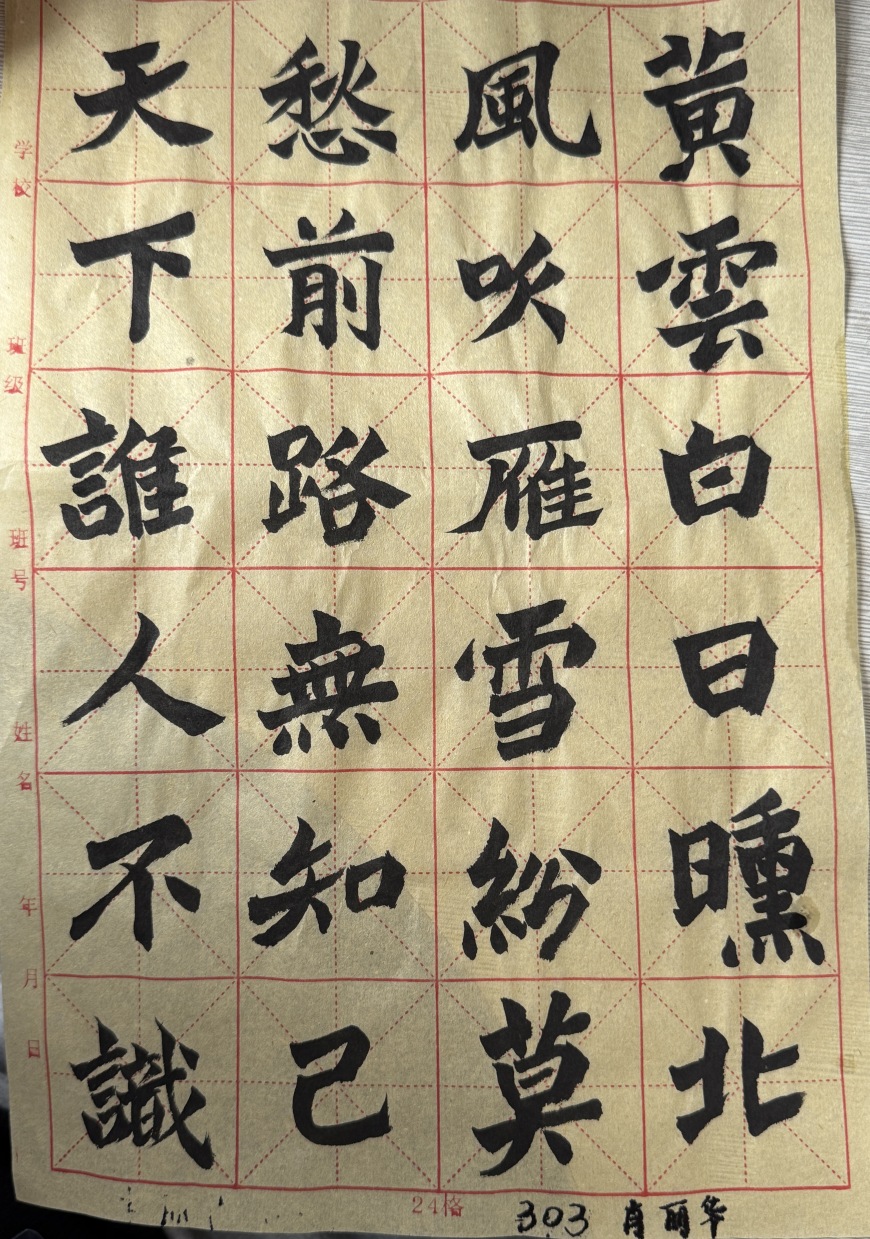 黄雲白日曛北
風吹雁雪紛莫
愁前路無知己
天下誰人不識
学校
班级
班号
姓名
年月日
24格
303 肖丽华